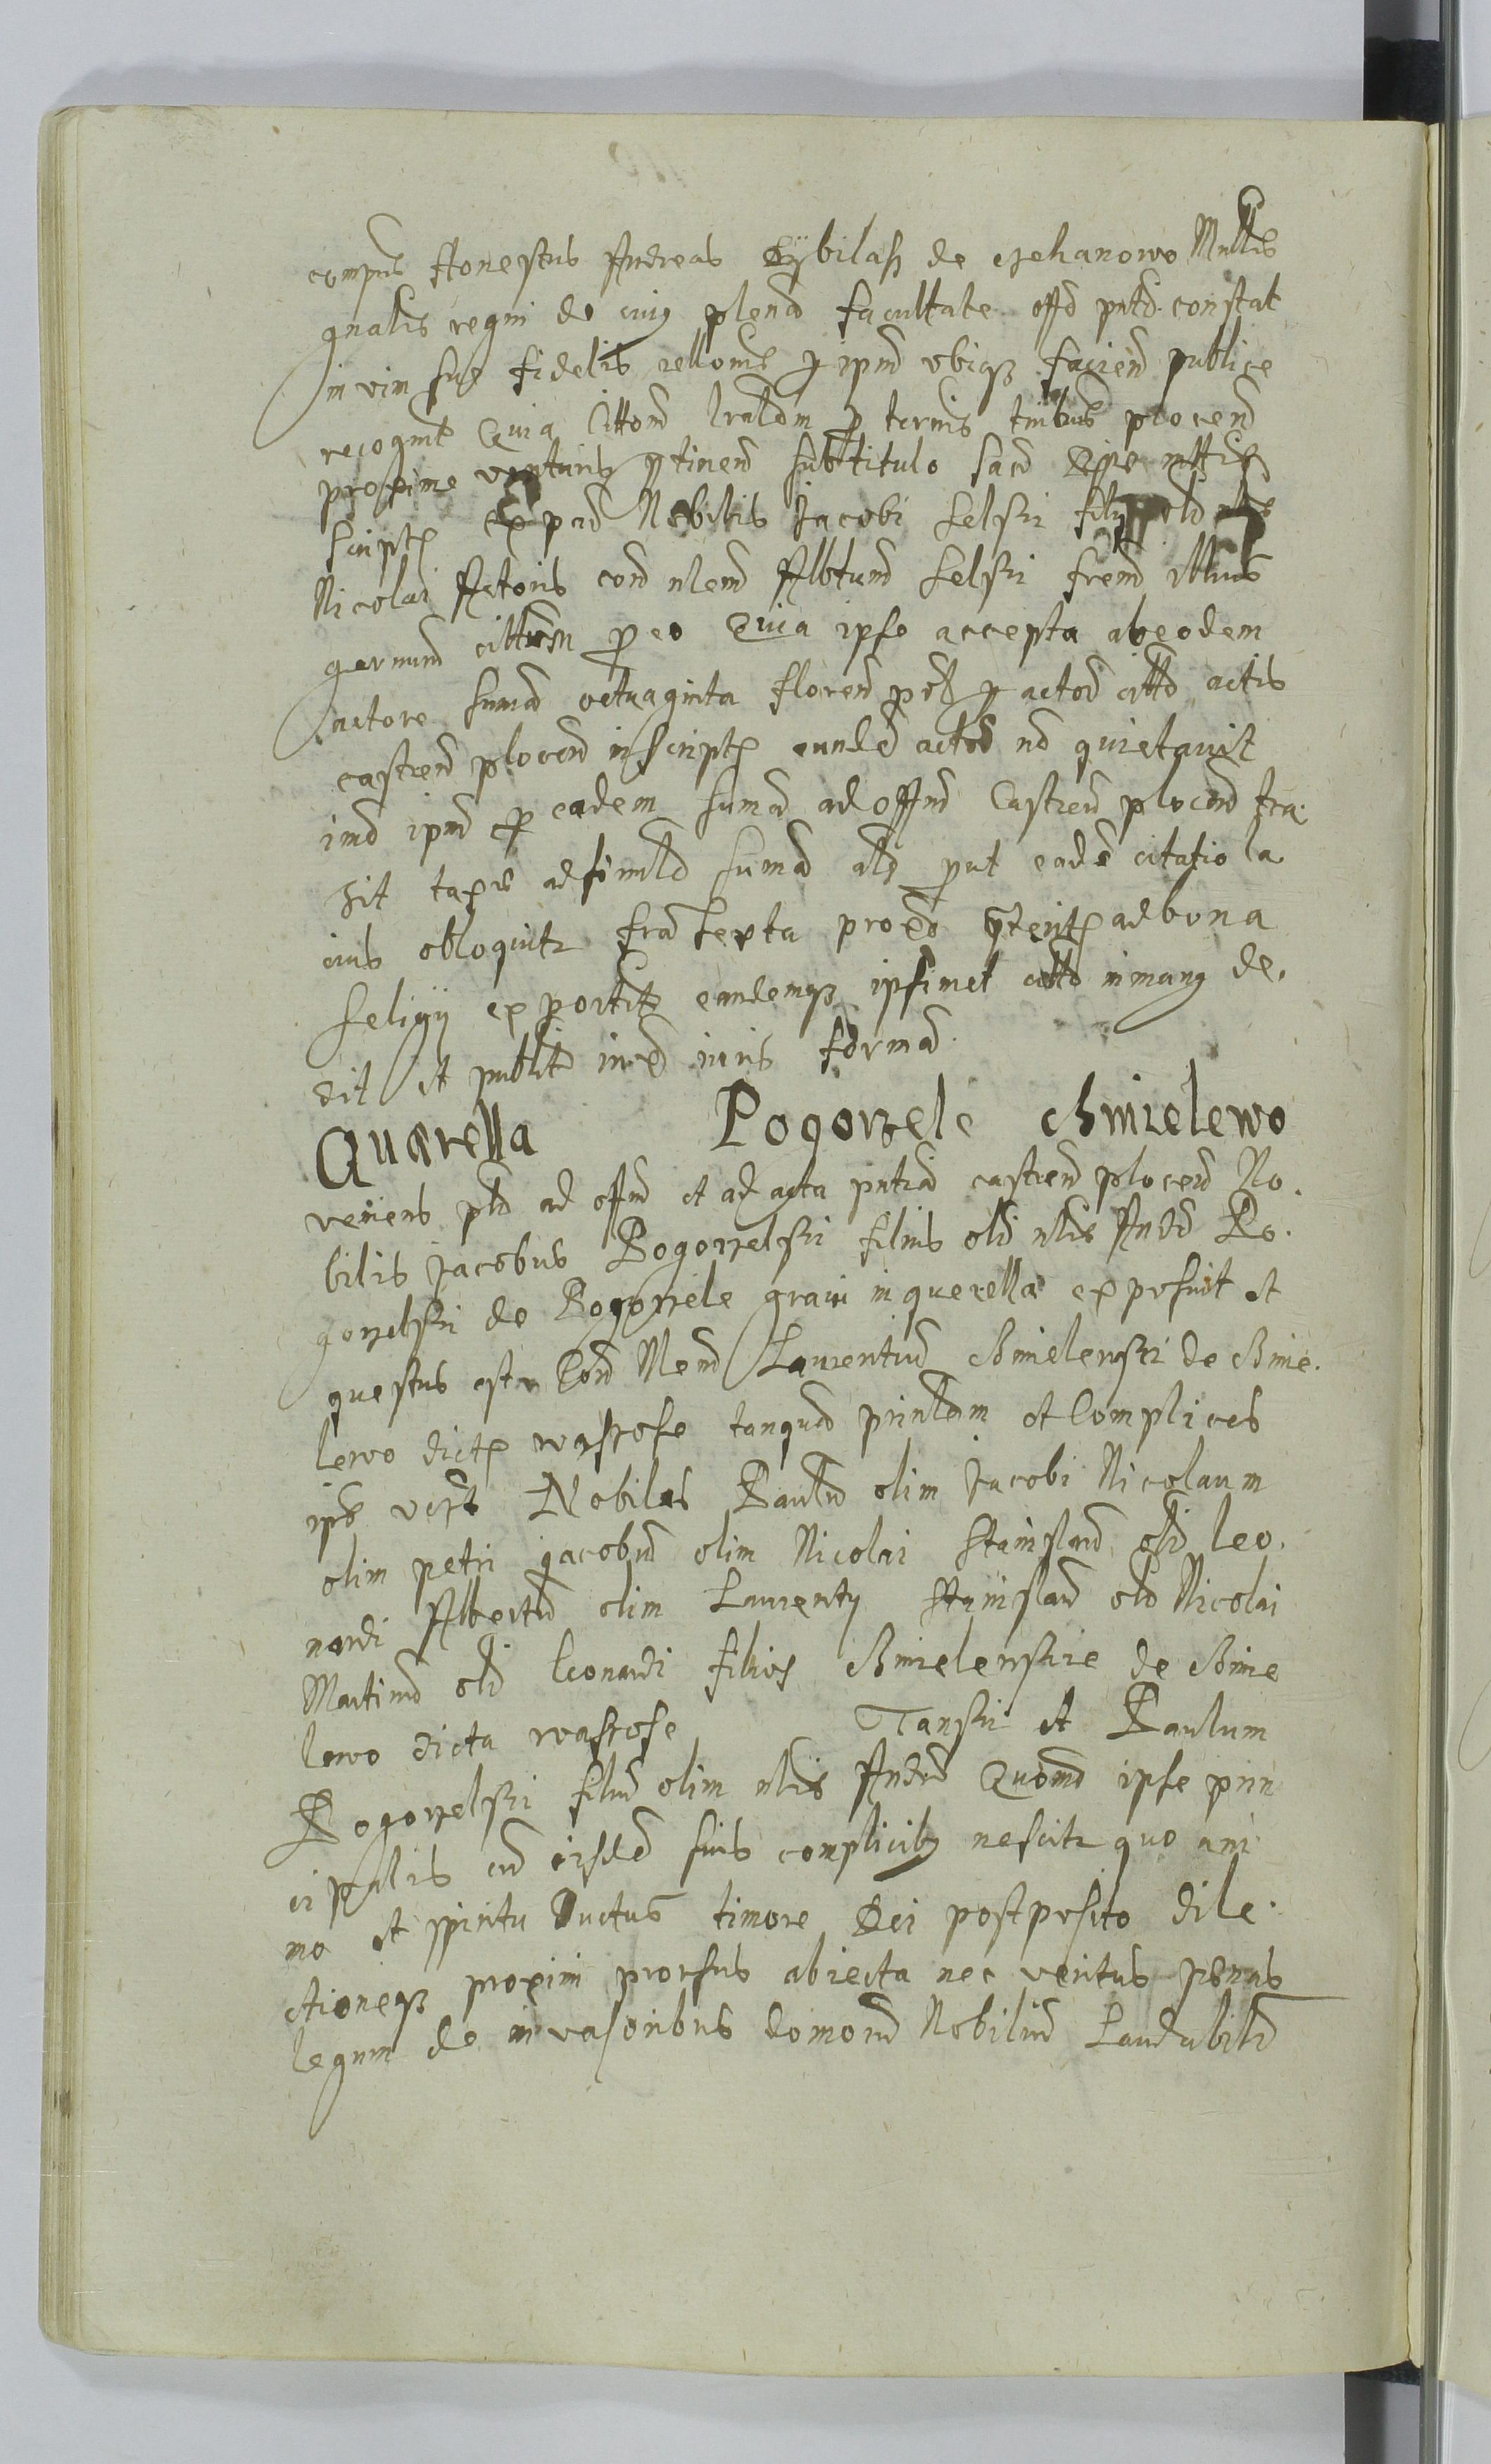 compns Honestus Andreas Cybilass de czehanowo Mnllis
gnalis regni de cuig plena facultate offo pntd constat
in vim sue fidelis rellonis p ipm vbiqz faciend publice
recognit Quia Cittom lraldm p termis tnibus plocens
proxime venturis ptinend sub titulo sacd Rgie mttis
scripta ex pard Nobilis Jacobi Lelski filij old nlis
Nicolai Actoris cond nlem Albtum Lelski frem illius
germanu cittum p eo Quia ipse accepta ab eodem
actore suma octuaginta floren pol p actod citto actis
castrens plocens inscripta eunde actod no quietauit
imo ipm p eadem suma ad offm Castrens plocens tra
sit adsimilo suma als put eade citatio la
cius obloquitr fra texta proeo ad bona
Seligij exportit eandemqz ipsimet citto in manus de
dit et publit in eo iuris forma
Querella Pogorzele Chmielewo
veniens pld ad offm et ad acta pntia castrens plocens No
bilis Jacobus Pogorzelski filius old nlis Andr Po
gorzelski de Pogorzele graui in querella exposuit et
questus est Cond Nlem Laurentiu Chmielewski de Chmie
lewo dicta waskosse tanqua prinlem et Complices
ips vers Nobiles Paulu olim Jacobi Nicolaum
olim petri Jacobu olim Nicolai Stanislau old Leo
nardi Albertu olim Laurenty Stanislau old Nicolai
Martinu old leonardi filios Chmielewskie de Chmie
lewo dicta waskosse Tanski et Paulum
Pogorzelski filiu olim nlis Andrae Quomo ipse prin
cipalis cu eisde suis complicibus nescitr quo ani
mo et spiritu ductus timore Dei postposito dile
ctioneqz proximi prorsus abiecta nec veritus penas
legum de inuasoribus domoru Nobiliu Laudabili